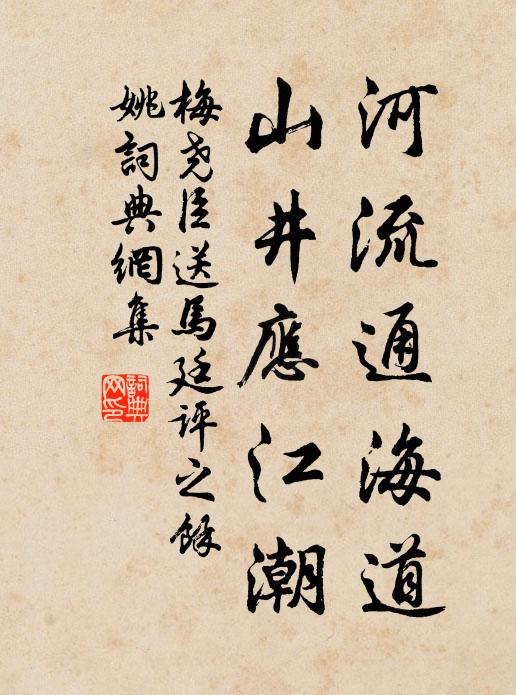 河流通海道
山井應江潮
梅尧臣送馬廷评之餘
姚詞典網集
詞典
网印